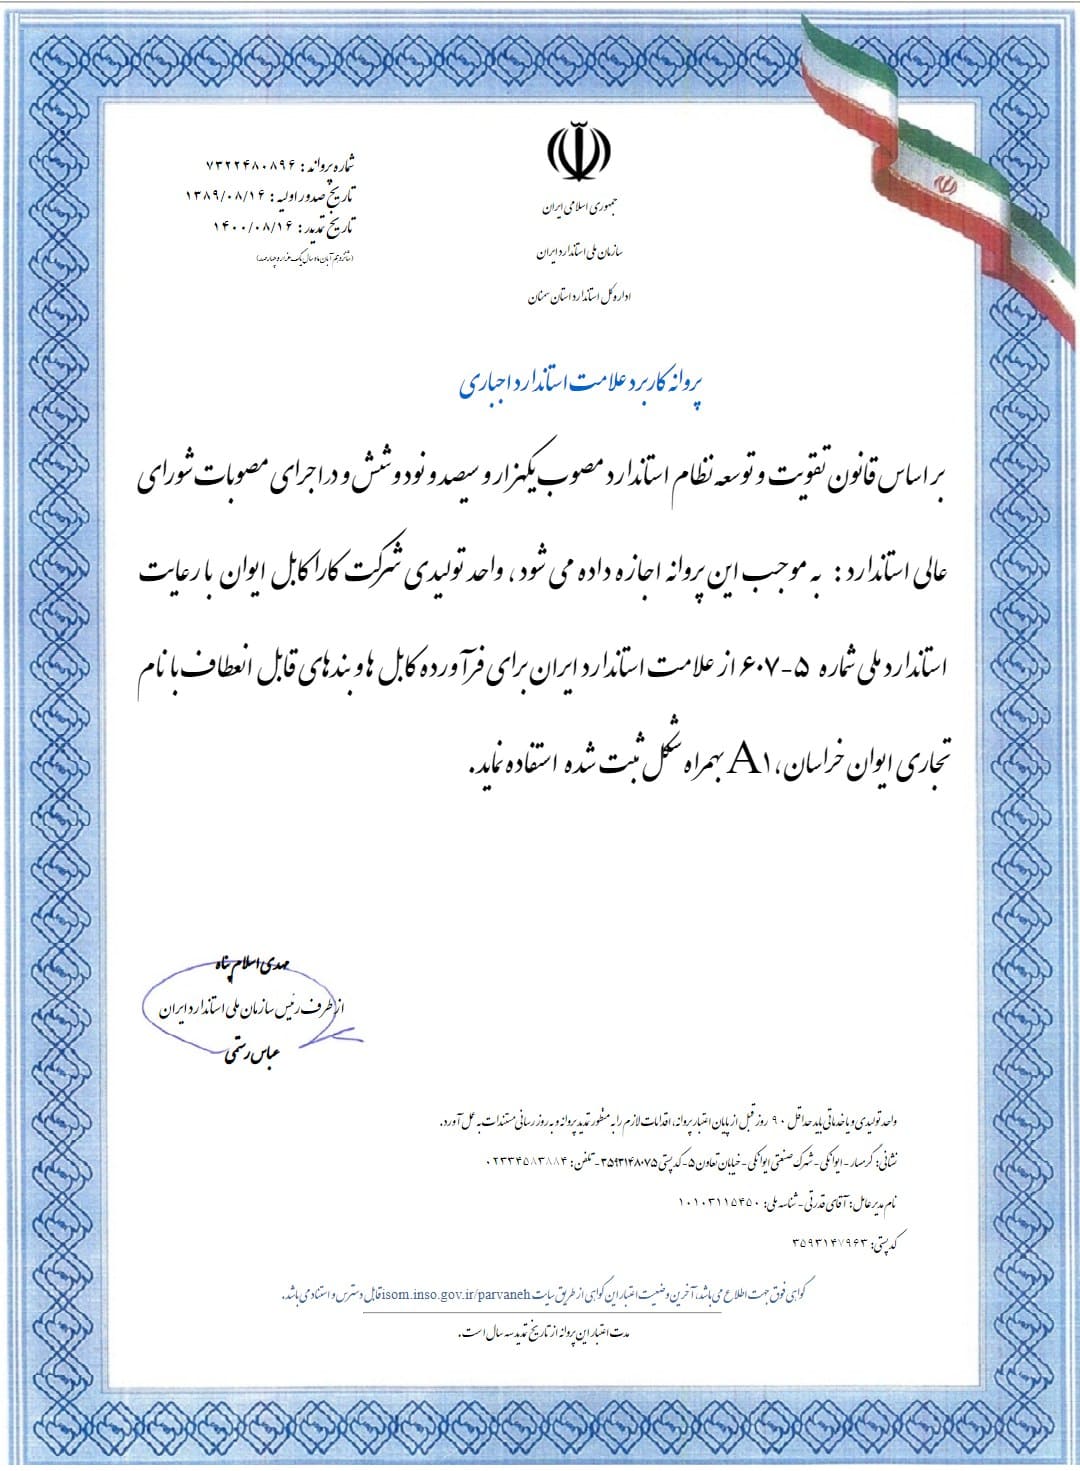 جمهوری اسلامی ایران
سازمان ملی استاندارد ایران
اداره کل استاندارد استان سمنان
شماره پروانه : ۷۳۲۲۴۸۰۸۹۶
تاریخ صدور اولیه : ۱۳۸۹/۰۸/۱۶
تاریخ تمدید : ۱۴۰۰/۰۸/۱۶
(شانزدهم آبان ماه سال یک هزار و چهارصد)
پروانه کاربرد علامت استاندارد اجباری
بر اساس قانون تقویت و توسعه نظام استاندارد مصوب یکهزار و سیصد و نود و شش و در اجرای مصوبات شورای
عالی استاندارد : به موجب این پروانه اجازه داده می شود ، واحد تولیدی شرکت کارا کابل ایوان با رعایت
استاندارد ملی شماره ۵-۶۰۷ از علامت استاندارد ایران برای فرآورده کابل ها و بندهای قابل انعطاف با نام
تجاری ایوان خراسان ، A۱ بهمراه شکل ثبت شده استفاده نماید .
مهدی اسلام پناه
از طرف رئیس سازمان ملی استاندارد ایران
عباس رستمی
واحد تولیدی و یا خدماتی باید حداقل ۹۰ روز قبل از پایان اعتبار پروانه، اقدامات لازم را به منظور تمدید پروانه و به روز رسانی مستندات به عمل آورد.
نشانی: گرمسار - ایوانکی - شهرک صنعتی ایوانکی - خیابان تعاون ۵ - کدپستی ۳۵۹۳۱۴۸۰۷۵ - تلفن : ۰۲۳۳۴۵۸۳۸۸۴
نام مدیر عامل : آقای قدرتی - شناسه ملی : ۱۰۱۰۳۱۱۵۴۵۰
کد پستی: ۳۵۹۳۱۴۷۹۶۳
گواهی فوق جهت اطلاع می باشد، آخرین وضعیت اعتبار این گواهی از طریق سایت isom.inso.gov.ir/parvaneh قابل دسترس و استناد می باشد.
مدت اعتبار این پروانه از تاریخ تمدید سه سال است.